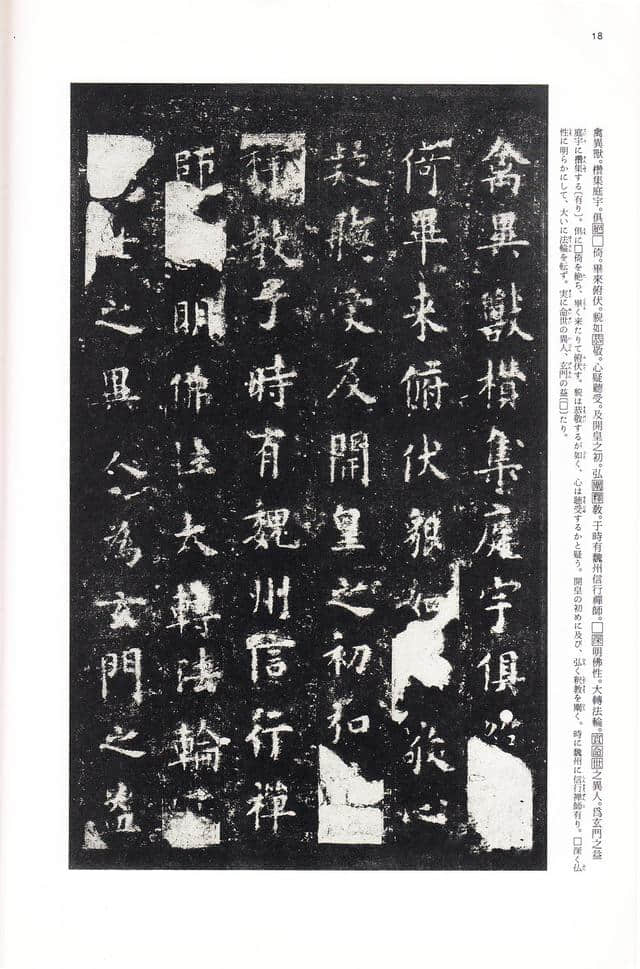 18
禽異獸。櫕集庭宇。俱絕□倚。畢來俯伏。貌如恭敬。心疑聽受。及開皇之初。弘闡釋敎。于時有魏州信行禪師。□深明佛性。大轉法輪。實命世之異人。爲玄門之益
庭宇に櫕集する〔有り〕。俱に□倚を絶ち、畢く来たりて俯伏す。貌は恭敬するが如く、心は聴受するかと疑う。開皇の初めに及び、弘く釈教を闡く。時に魏州に信行禅師有り。□深く仏
性に明らかにして、大いに法輪を転ず。実に命世の異人、玄門の益〔□〕たり。
禽異獸櫕集庭宇俱絕
倚畢来俯伏貌如敬心
疑聽受及開皇之初弘
釋教于時有魏州信行禪
師明佛性大轉法輪
世之異人為玄門之益